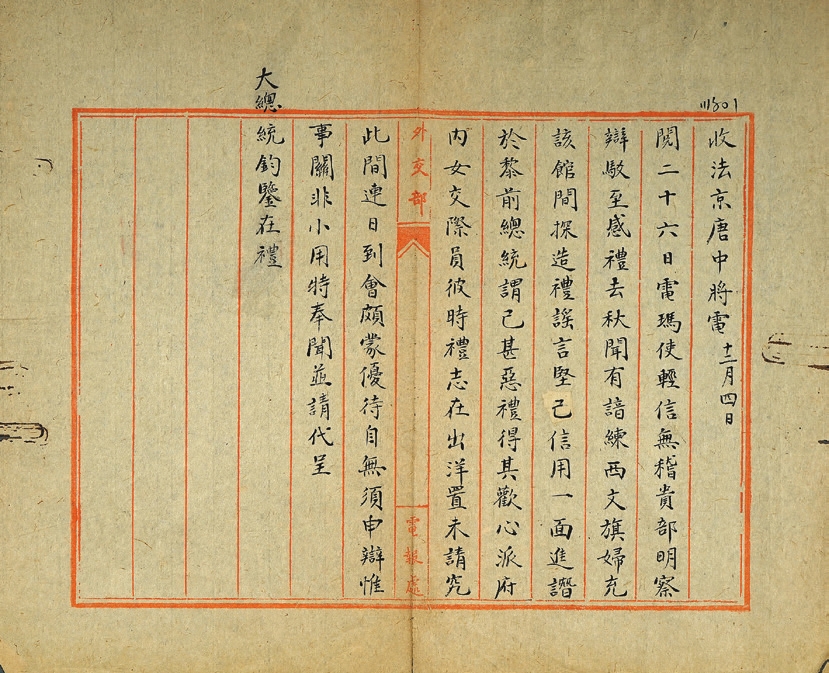 收法京唐中將電 十二月四日
閱二十六日電瑪使輕信無稽貴部明察
辯駁至感禮去秋聞有諳練西文旗婦充
該館間探造禮謠言堅己信用一面進譖
於黎前總統謂己甚惡禮得其歡心派府
內女交際員彼時禮志在出洋置未請究
外交部
電報處
此間連日到會頗蒙優待自無須申辯惟
事關非小用特奉聞並請代呈
大總統鈞鑒在禮